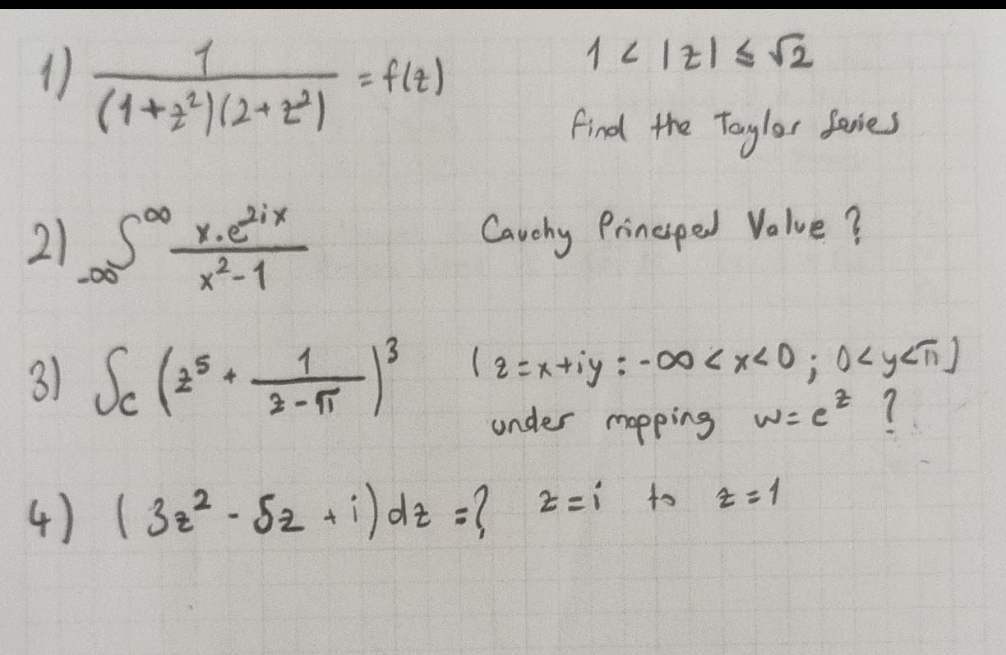 1) 1/((1+z²)(2+z²)) = f(z) 1 < |z| ≤ √2
find the Taylor Series
2) ∫_{-∞}^{∞} x.e^{2ix}/(x²-1) Cauchy Principal Value ?
3) ∫_c (z⁵ + 1/(z-π))³ (z=x+iy : -∞<x<0 ; 0<y<π)
under mapping w=e^z ?
4) (3z² - 5z + i)dz =? z=i to z=1